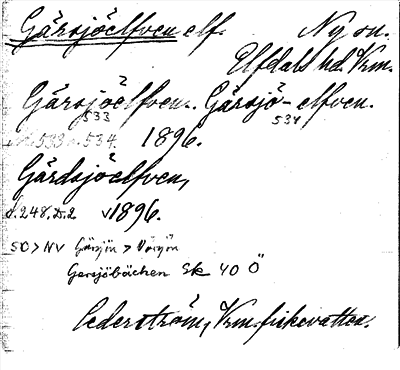 Gärsjöelfven elf. Ny sn.
Elfdals hd. Vrm.
Gärsjöelfven. Gärsjö-elfven.
533 534
s. 533 o. 534. 1896.
Gärdsjöelfven,
s. 248. D.2 1896.
SO > NV Gärsjön >
Gersjöbäcken Sk 40 Ö
Cederström, Vrm. fiskevatten.